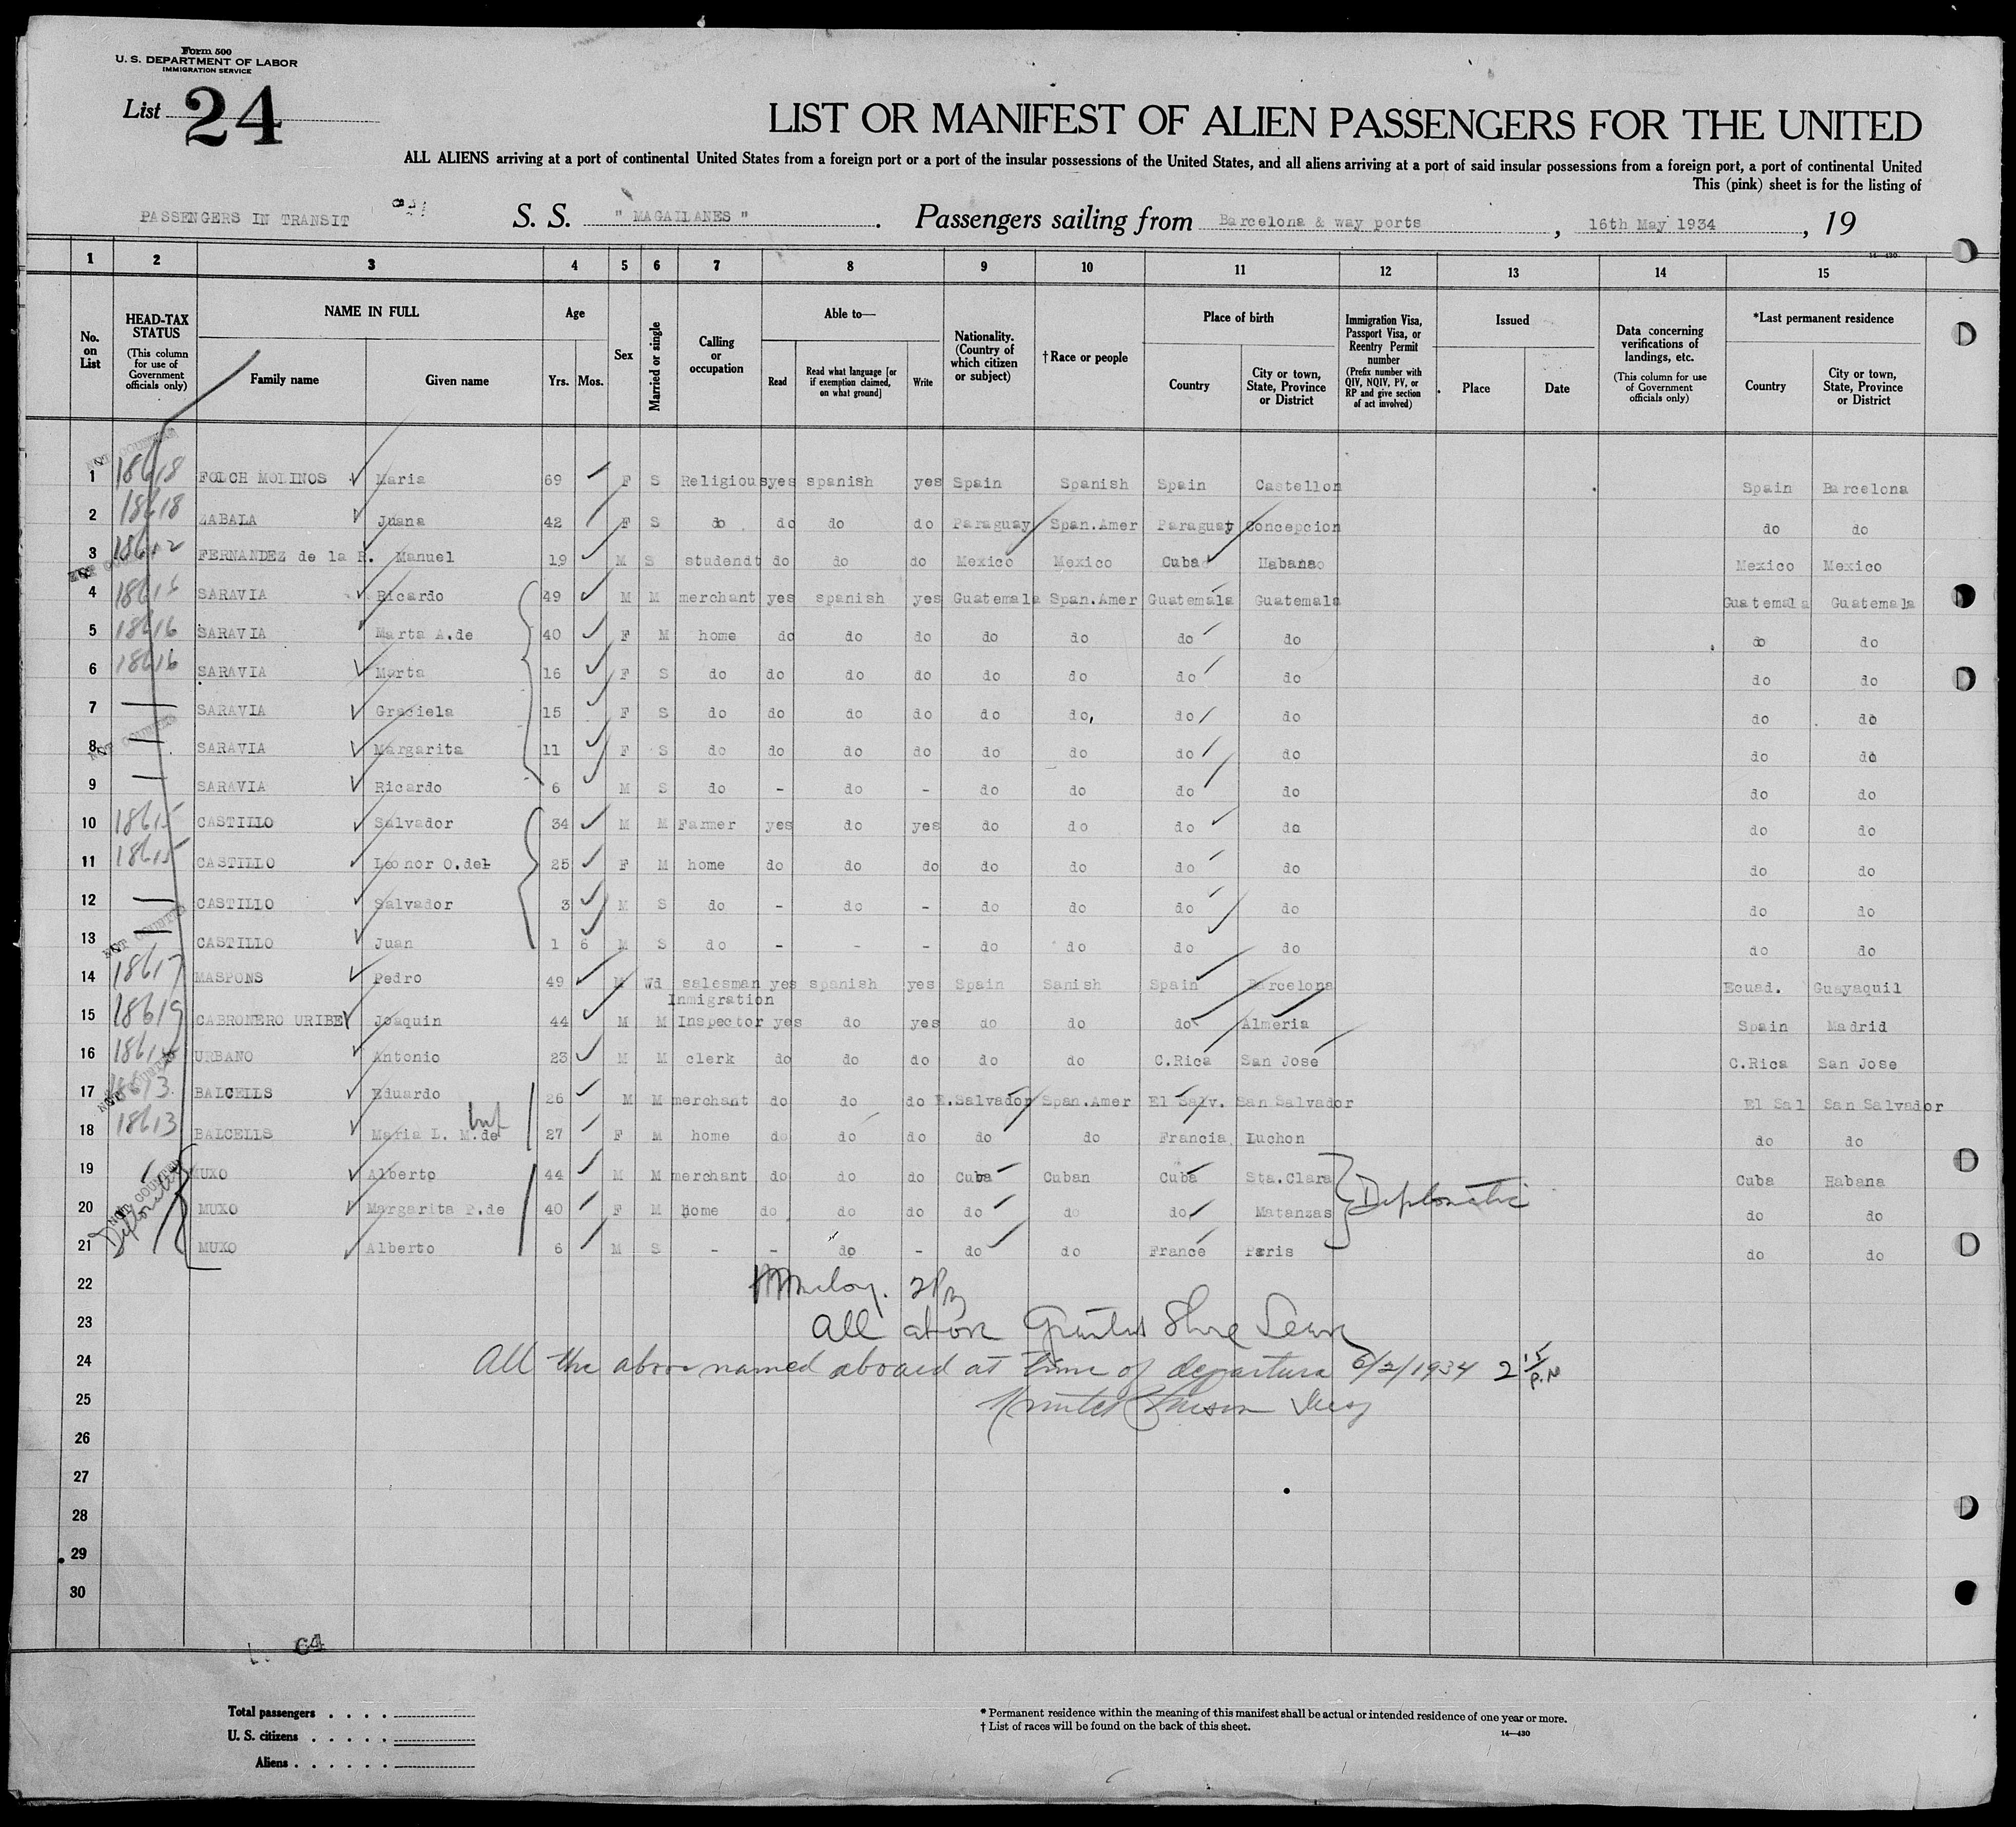 Form 500
U. S. DEPARTMENT OF LABOR
IMMIGRATION SERVICE
List 24
LIST OR MANIFEST OF ALIEN PASSENGERS FOR THE UNITED
ALL ALIENS arriving at a port of continental United States from a foreign port or a port of the insular possessions of the United States, and all aliens arriving at a port of said insular possessions from a foreign port, a port of continental United
This (pink) sheet is for the listing of
PASSENGERS IN TRANSIT S. S. " MAGALLANES " . Passengers sailing from Barcelona & way ports , 16th May 1934 , 19
14—430
1 2 3 4 5 6 7 8 9 10 11 12 13 14 15
No. on List
HEAD-TAX STATUS (This column for use of Government officials only)
NAME IN FULL Family name Given name
Age Yrs. Mos.
Sex
Married or single
Calling or occupation
Able to— Read Read what language [or if exemption claimed, on what ground] Write
Nationality. (Country of which citizen or subject)
† Race or people
Place of birth Country City or town, State, Province or District
Immigration Visa, Passport Visa, or Reentry Permit number (Prefix number with QIV, NQIV, PV, or RP and give section of act involved)
Issued Place Date
Data concerning verifications of landings, etc. (This column for use of Government officials only)
*Last permanent residence Country City or town, State, Province or District
1 18618 FOLCH MOLINOS Maria 69 F S Religious yes spanish yes Spain Spanish Spain Castellon Spain Barcelona
2 18618 ZABALA Juana 42 F S do do do do Paraguay Span.Amer Paraguay Concepcion do do
3 18612 FERNANDEZ de la R. Manuel 19 M S studendt do do do Mexico Mexico Cuba Habana Mexico Mexico
4 18616 SARAVIA Ricardo 49 M M merchant yes spanish yes Guatemala Span.Amer Guatemala Guatemala Guatemala Guatemala
5 18616 SARAVIA Marta A.de 40 F M home do do do do do do do do do
6 18616 SARAVIA Marta 16 F S do do do do do do do do do do
7 — SARAVIA Graciela 15 F S do do do do do do, do do do do
8 — SARAVIA Margarita 11 F S do do do do do do do do do do
9 — SARAVIA Ricardo 6 M S do - do - do do do do do do
10 18615 CASTILLO Salvador 34 M M Farmer yes do yes do do do do do do
11 18615 CASTILLO Leonor O.del 25 F M home do do do do do do do do do
12 — CASTILLO Salvador 3 M S do - do - do do do do do do
13 — CASTILLO Juan 1 6 M S do - - - do do do do do do
14 18617 MASPONS Pedro 49 M Wd salesman yes spanish yes Spain Sanish Spain Barcelona Ecuad. Guayaquil
15 18619 CABRONERO URIBE Joaquin 44 M M Inmigration Inspector yes do yes do do do Almeria Spain Madrid
16 URBANO Antonio 23 M M clerk do do do do do C.Rica San Jose C.Rica San Jose
17 18613 BALCELLS Eduardo 26 M M merchant do do do E.Salvador Span.Amer El Salv. San Salvador El Sal San Salvador
18 18613 BALCELLS Maria L. M.de 27 F M home do do do do do Francia Luchon do do
19 MUXO Alberto 44 M M merchant do do do Cuba Cuban Cuba Sta.Clara Cuba Habana
20 MUXO Margarita P.de 40 F M home do do do do do do Matanzas Diplomatic do do
21 MUXO Alberto 6 M S - - do - do do France Paris do do
NOT COUNTED
Diplomatic
22
23 All above Granted Shore Leave
24 All the above named aboard at time of departure 6/2/1934 2 15 P.M
25
26
27
28
29
30
64
Total passengers . . . .
U. S. citizens . . . . .
Aliens . . . . . .
* Permanent residence within the meaning of this manifest shall be actual or intended residence of one year or more.
† List of races will be found on the back of this sheet.
14—430